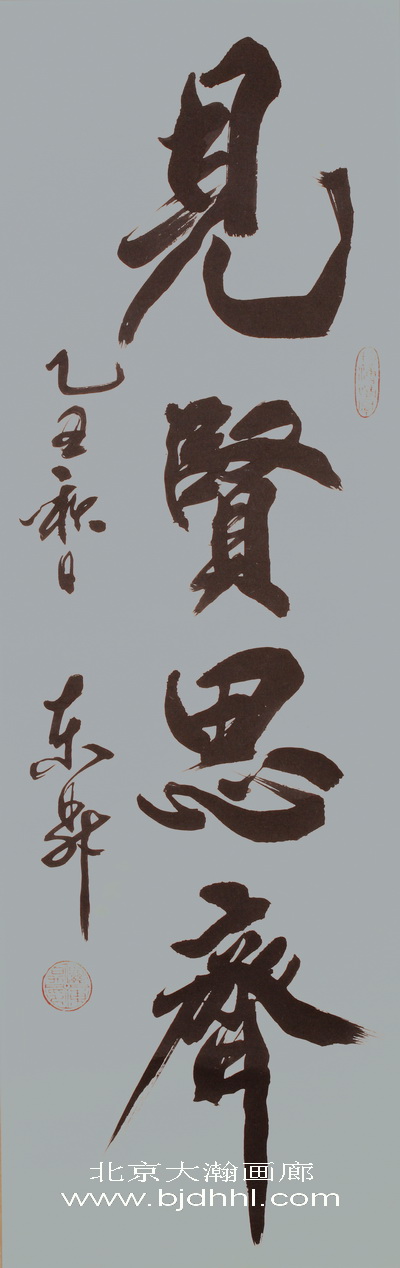 見賢思齊
乙丑秋日
东舁
北京大瀚画廊
www.bjdhhl.com